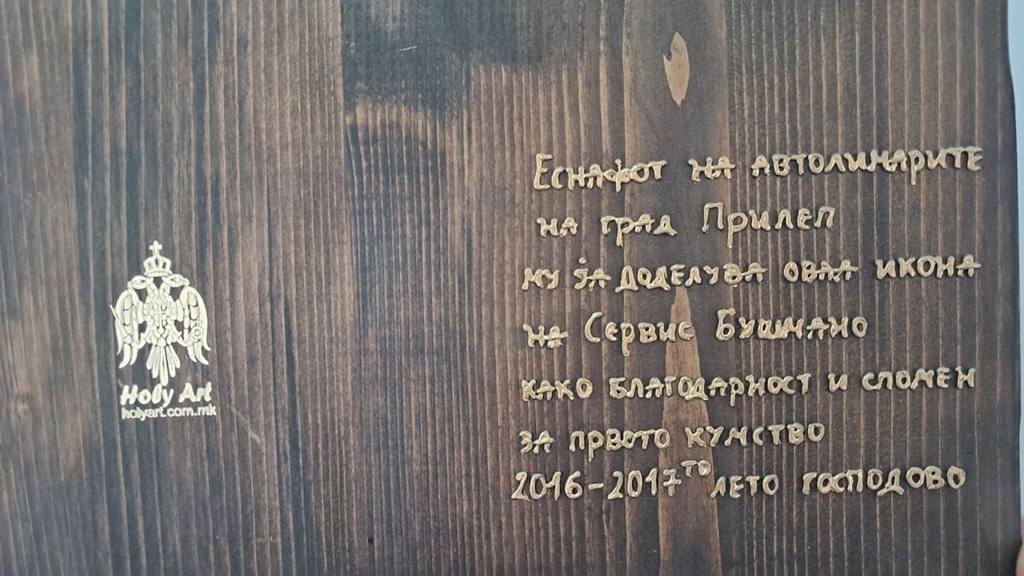 Holy Art
holyart.com.mk
Еснафот на автолимарите
на град Прилеп
му ја доделува оваа икона
на Сервис Бушмано
како благодарност и спомен
за првото кумство
2016-2017то лето господово